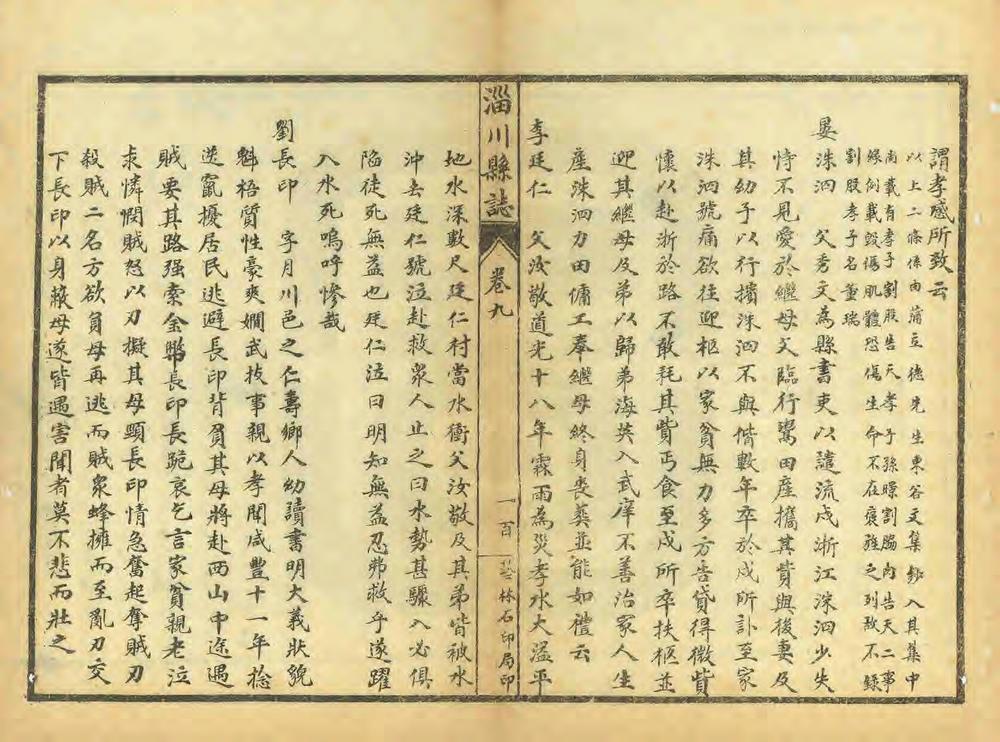 謂孝感所致云
以上二條係由蒲立德先生東谷文集鈔入其集中
尚載有孝子割股告天孝子孫暻割脇肉告天二事
緣例載毀傷肌體恐傷生命不在褒旌之列故不錄
割股孝子名董瑞
晏洙泗 父秀文為縣書吏以譴流戍浙江洙泗少失
恃不見愛於繼母父臨行鬻田產攜其貲與後妻及
其幼子以行擯洙泗不與偕數年卒於戍所訃至家
洙泗號痛欲往迎柩以家貧無力多方告貸得微貲
懷以赴浙於路不敢耗其貲丐食至戍所卒扶柩並
迎其繼母及弟以歸弟海英入武庠不善治家人生
產洙泗力田傭工奉繼母終身喪葬並能如禮云
李廷仁 父汝敬道光十八年霖雨為災孝水大溢平
淄川縣誌
卷九
一百
藝林石印局印
地水深數尺廷仁村當水衝父汝敬及其弟皆被水
沖去廷仁號泣赴救眾人止之曰水勢甚驟入必俱
陷徒死無益也廷仁泣曰明知無益忍弗救乎遂躍
入水死嗚呼慘哉
劉長印 字月川邑之仁壽鄉人幼讀書明大義狀貌
魁梧質性豪爽嫻武技事親以孝聞咸豐十一年捻
逆竄擾居民逃避長印背負其母將赴西山中途遇
賊要其路强索金幣長印長跪哀乞言家貧親老泣
求憐憫賊怒以刃擬其母頸長印情急奮起奪賊刃
殺賊二名方欲負母再逃而賊眾蜂擁而至亂刃交
下長印以身蔽母遂皆遇害聞者莫不悲而壯之